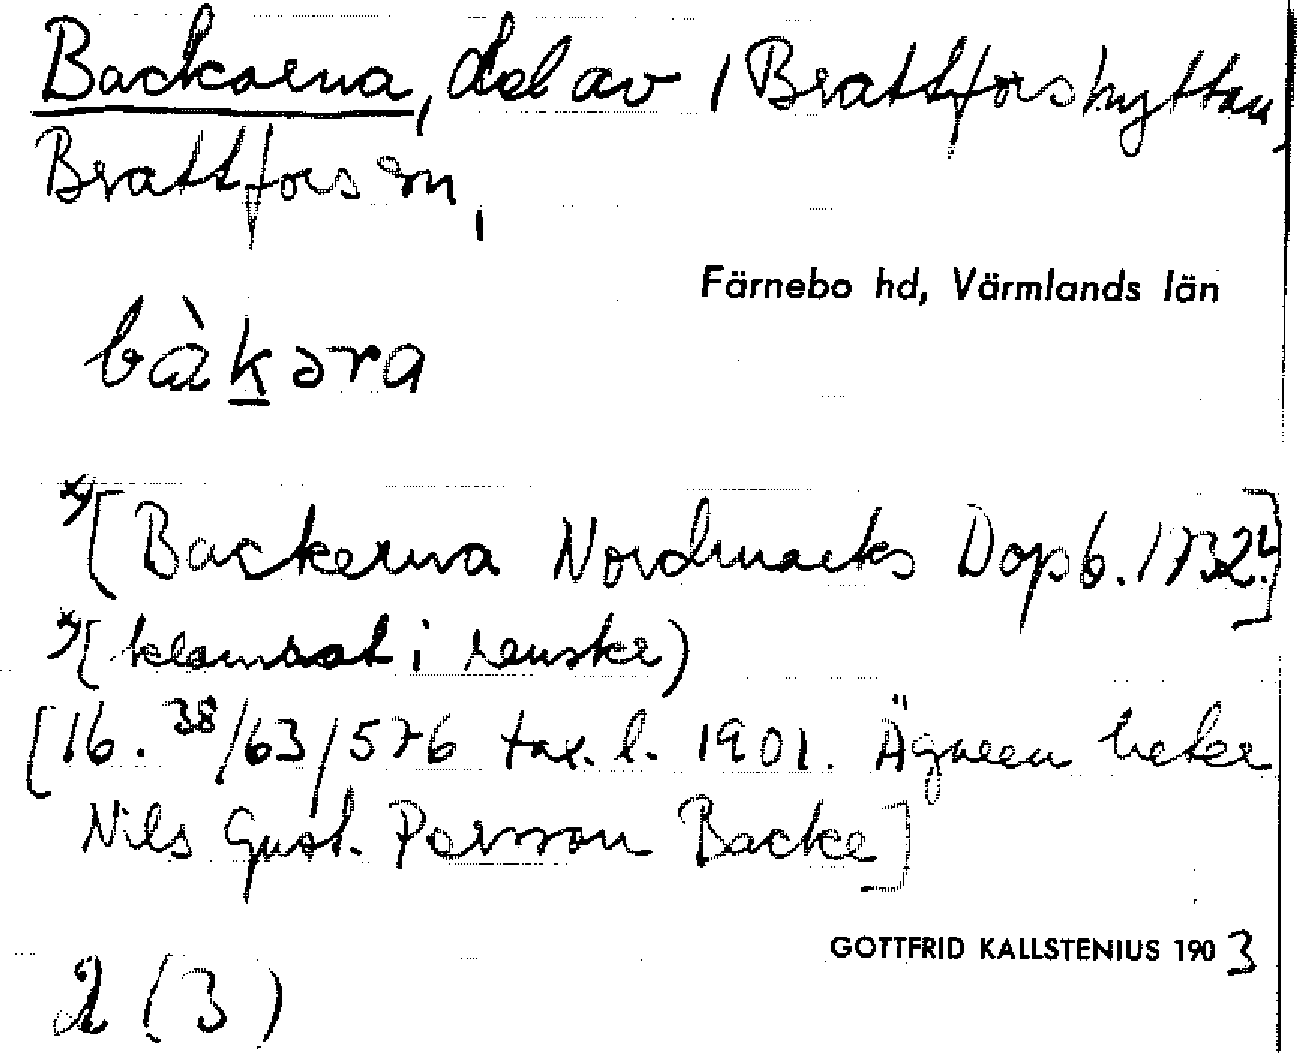 Backarna, del av 1 Brattforshyttan,
Brattfors sn,
Färnebo hd, Värmlands län
bàkəra
*) [Backerna Nordmarks Dopb. 1732.]
*) (klamrat i renskr)
[16. 38/63/576 tax. l. 1901. Ägaren heter
Nils Gust. Persson Backe]
GOTTFRID KALLSTENIUS 1903
2 (3)